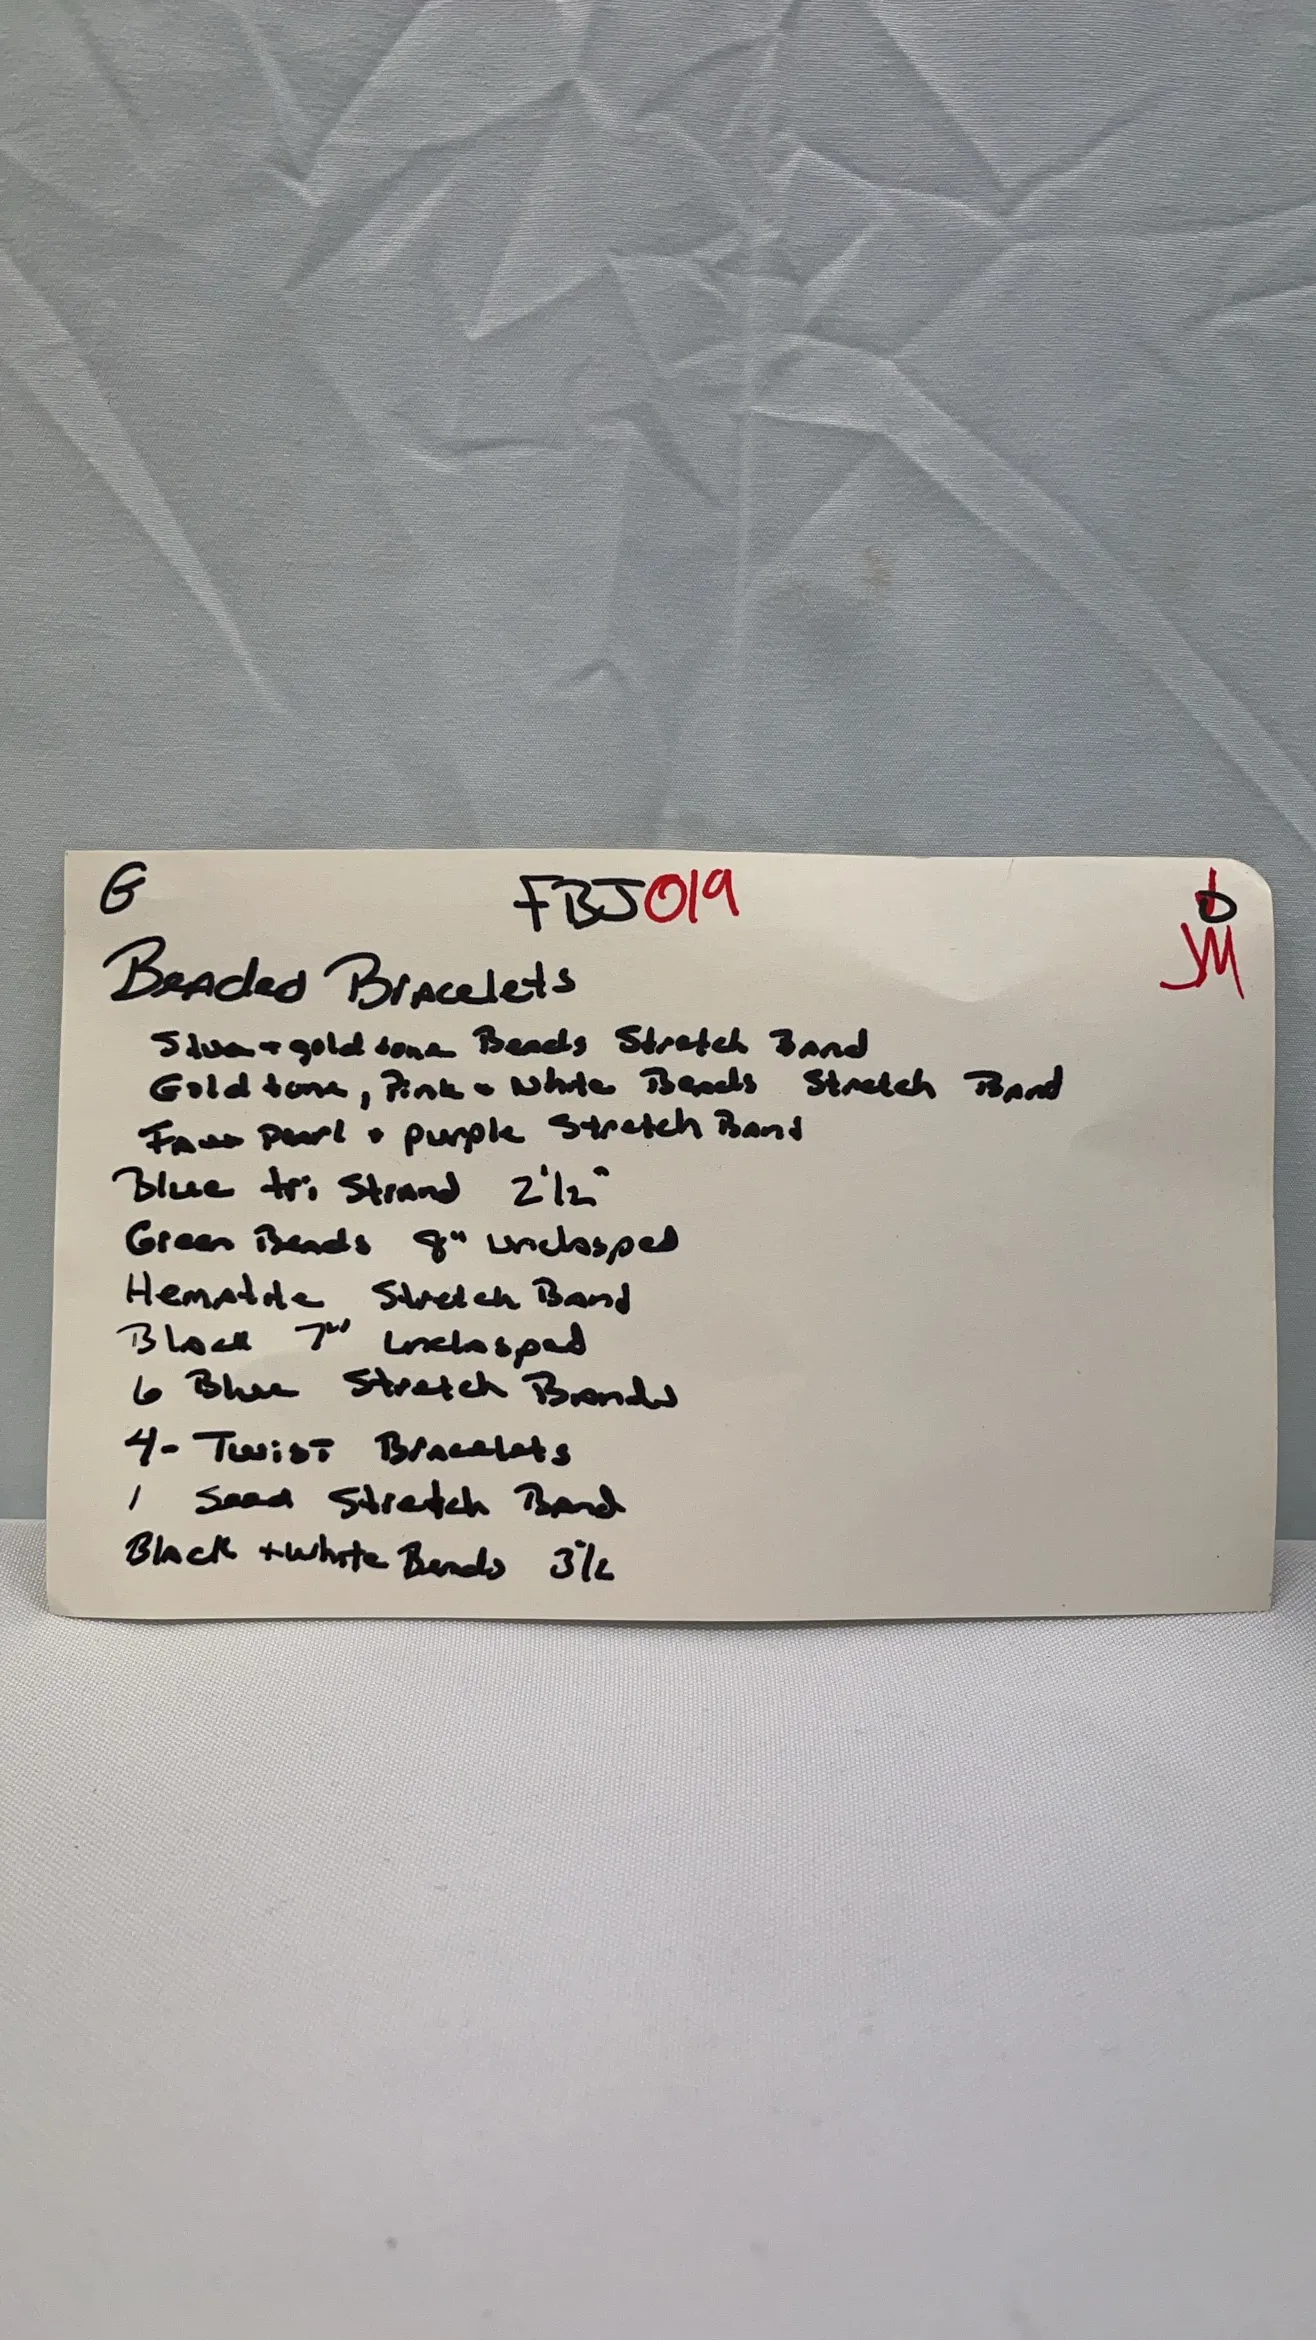 G FBJ019
JM
Beaded Bracelets
Silver + gold tone Beads Stretch Band
Gold tone, Pink + White Beads Stretch Band
Faux pearl + purple Stretch Band
Blue tri Strand 2 1/2"
Green Beads 8" unclasped
Hematite Stretch Band
Black 7" unclasped
6 Blue Stretch Bands
4- Twist Bracelets
1 Seed Stretch Band
Black + White Beads 3 1/2